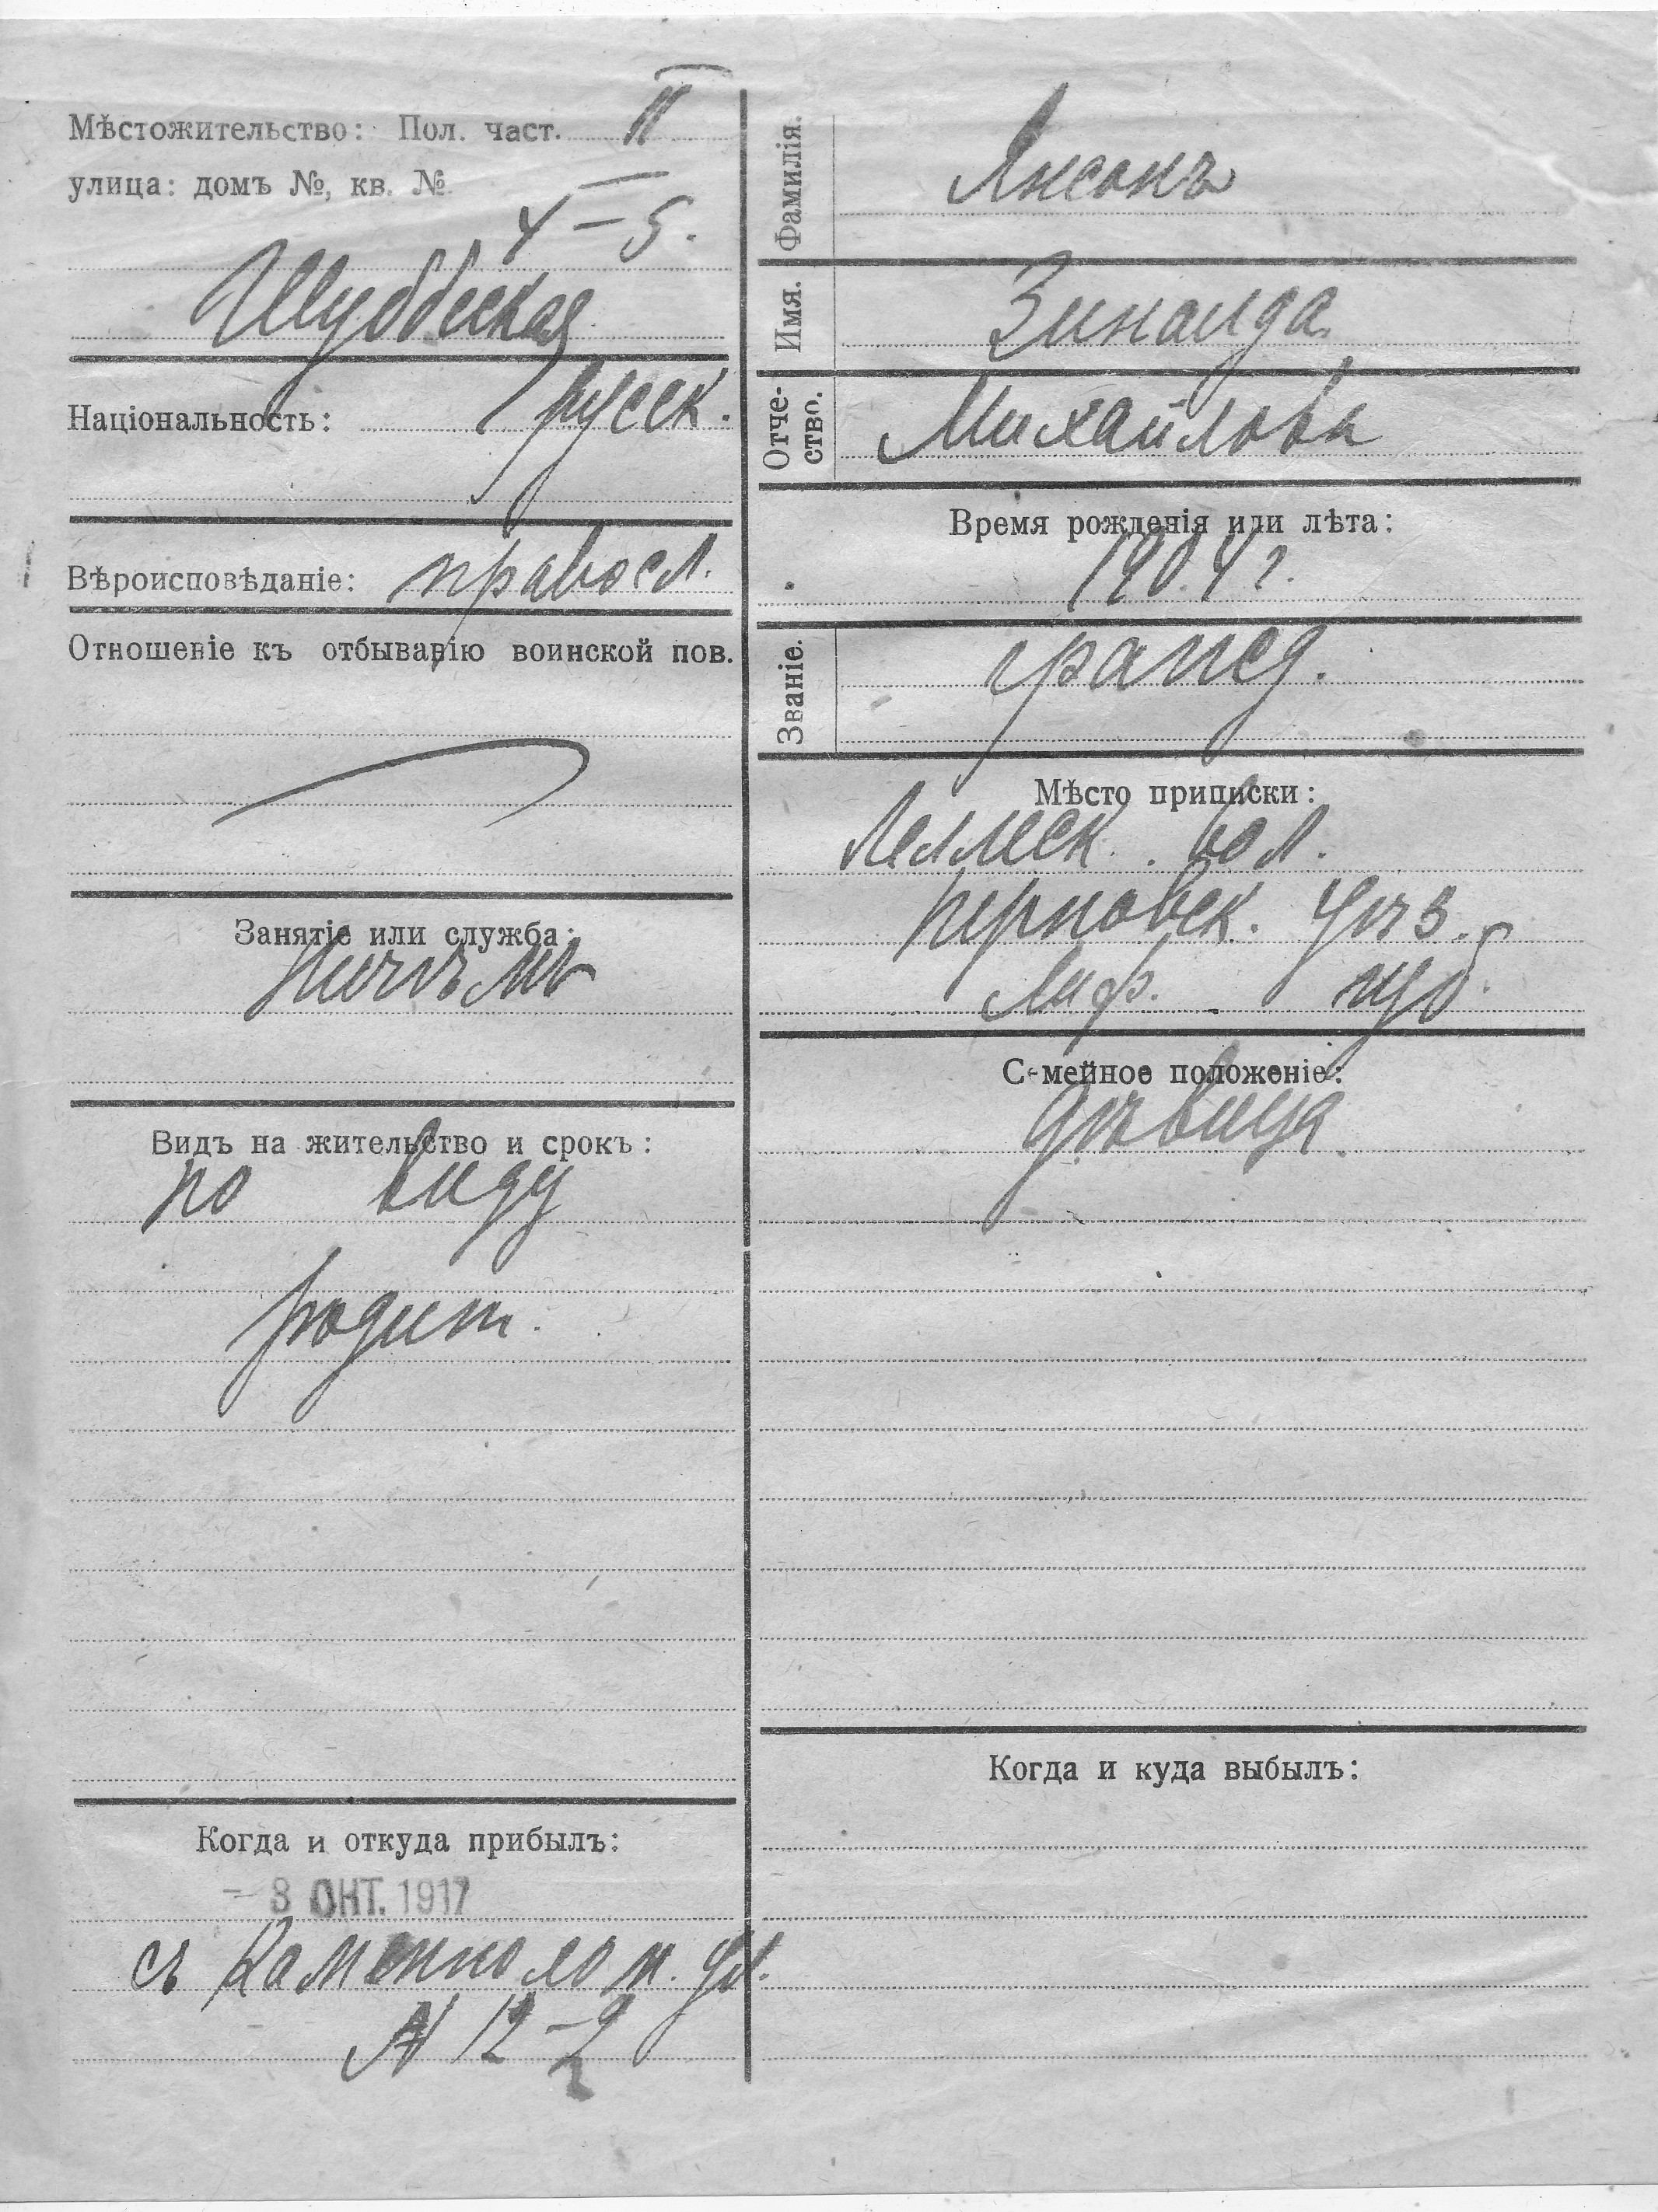 Мѣстожительство: Пол. част. II
улица: домъ №, кв. №
4 – 5.
Шуббеская
Національность: русск.
Вѣроисповѣданіе: правосл.
Отношеніе къ отбыванію воинской пов.
Занятіе или служба:
Ничѣмъ
Видъ на жительство и срокъ:
по виду
родит.
Когда и откуда прибылъ:
– 3 ОКТ. 1917
съ Каменнолом. ул.
№ 12 – 2
Фамилія. Янсонъ
Имя. Зинаида
Отче-
ство. Михайловн
Время рожденія или лѣта:
1904 г.
Званіе. гражд.
Мѣсто приписки:
вол.
Перновск. уѣз.
Лиф. губ.
Семейное положеніе:
дѣвица
Когда и куда выбылъ: